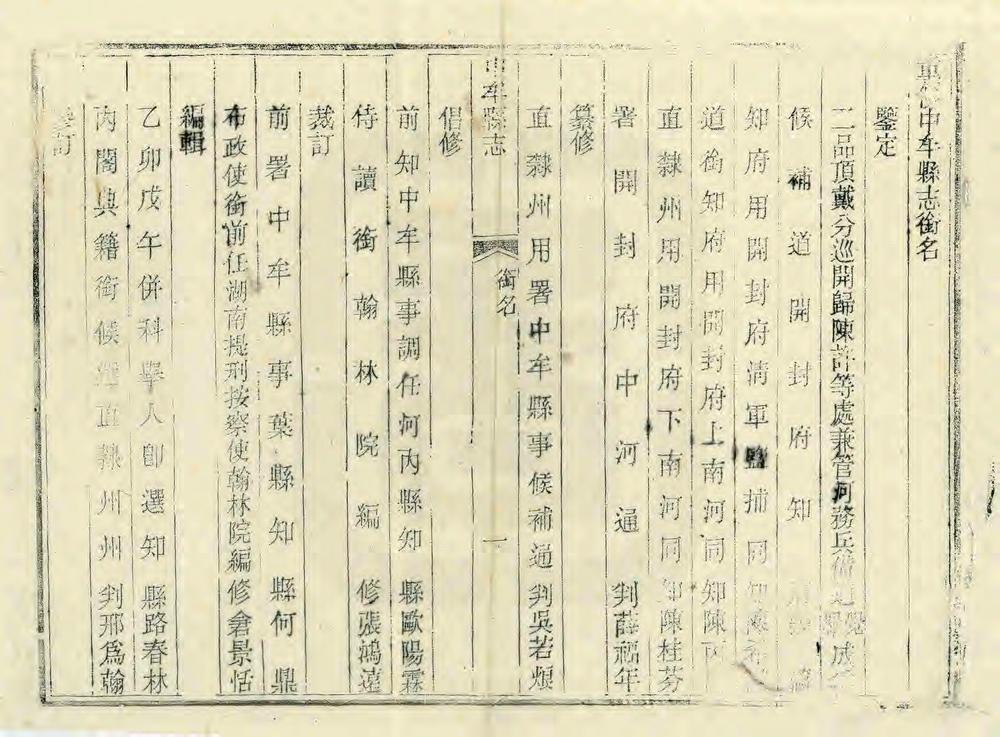 中牟縣志銜名
鑒定
二品頂戴分巡開歸陳許等處兼管河務兵備
候補道開封府知
知府用開封府清軍鹽捕同知
道銜知府用開封府上南河同知陳
直隸州用開封府下南河同知陳桂芬
署開封府中河通判薛福年
纂修
直隸州用署中牟縣事候補通判吳若烺
中牟縣志
銜名
一
倡修
前知中牟縣事調任河內縣知縣歐陽霖
侍讀銜翰林院編修張鴻遠
裁訂
前署中牟縣事葉縣知縣何鼎
布政使銜前任湖南提刑按察使翰林院編修倉景恬
編輯
乙卯戊午併科舉人卽選知縣路春林
內閣典籍銜候選直隸州州判邢爲翰
訂